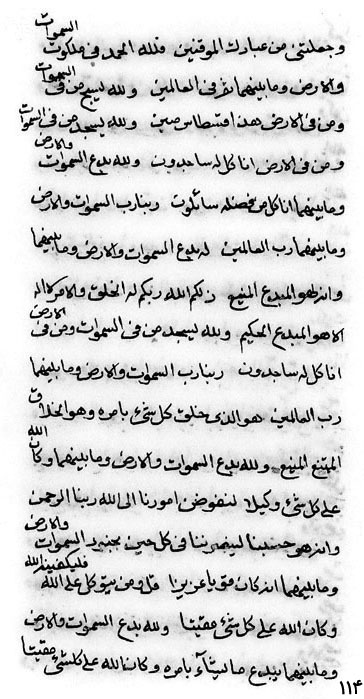 وجعلتنى من عبادك الموقنين فلله الحمد فى ملكوت السموات
والارض ومابينهما نذر فى العالمين ولله يسبح من فى السموات
ومن فى الارض هذا قسطاس مبين ولله يسجد من فى السموات والارض
ومن فى الارض انا كل له ساجدون ولله بدع السموات
ومابينهما انا كل من فضله سائلون ربنا رب السموات والارض
ومابينهما رب العالمين له بدع السموات والارض ومابينهما
وانه لهو المبدع المنيع ذلكم الله ربكم له الخلق والامر لا اله
الا هو المبدع الحكيم ولله يسجد من فى السموات ومن فى الارض
انا كل له ساجدون ربنا رب السموات والارض ومابينهما
رب العالمين هو الذى خلق كل شئ بامره وهو الخلاق
الممتنع المنيع ولله بدع السموات والارض ومابينهما وكان الله
على كل شئ وكيلا لنفوض امورنا الى الله ربنا الرحمن
وانه هو حسبنا لينصرننا فى كل حين بجنود السموات والارض
ومابينهما انه كان قويا عزيزا قل ومن يتوكل على الله فليكفينه الله
وكان الله على كل شئ مقيتا ولله بدع السموات والارض
ومابينهما يبدع ما يشآء بامره وكان الله على كلشئ مقيتا
١١٤